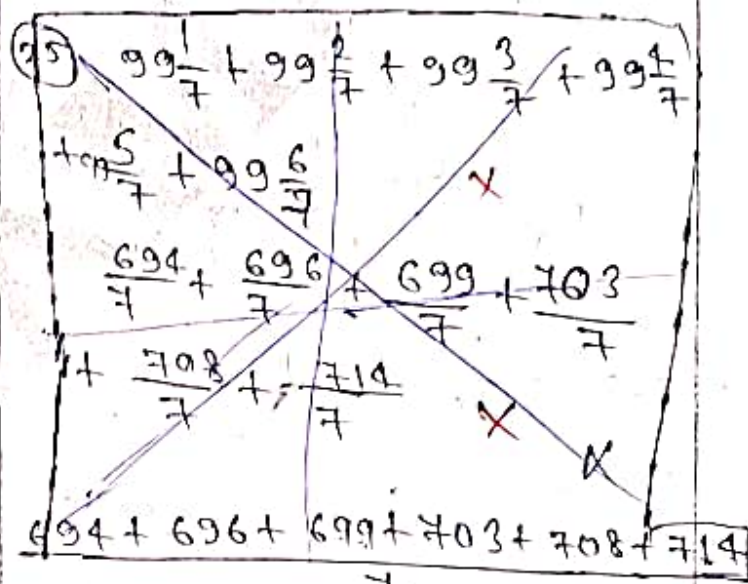 35 99 1/7 + 99 2/7 + 99 3/7 + 99 4/7
+ 99 5/7 + 99 6/7
694/7 + 696/7 + 699/7 + 703/7
+ 708/7 + 714/7
694 + 696 + 699 + 703 + 708 + 714